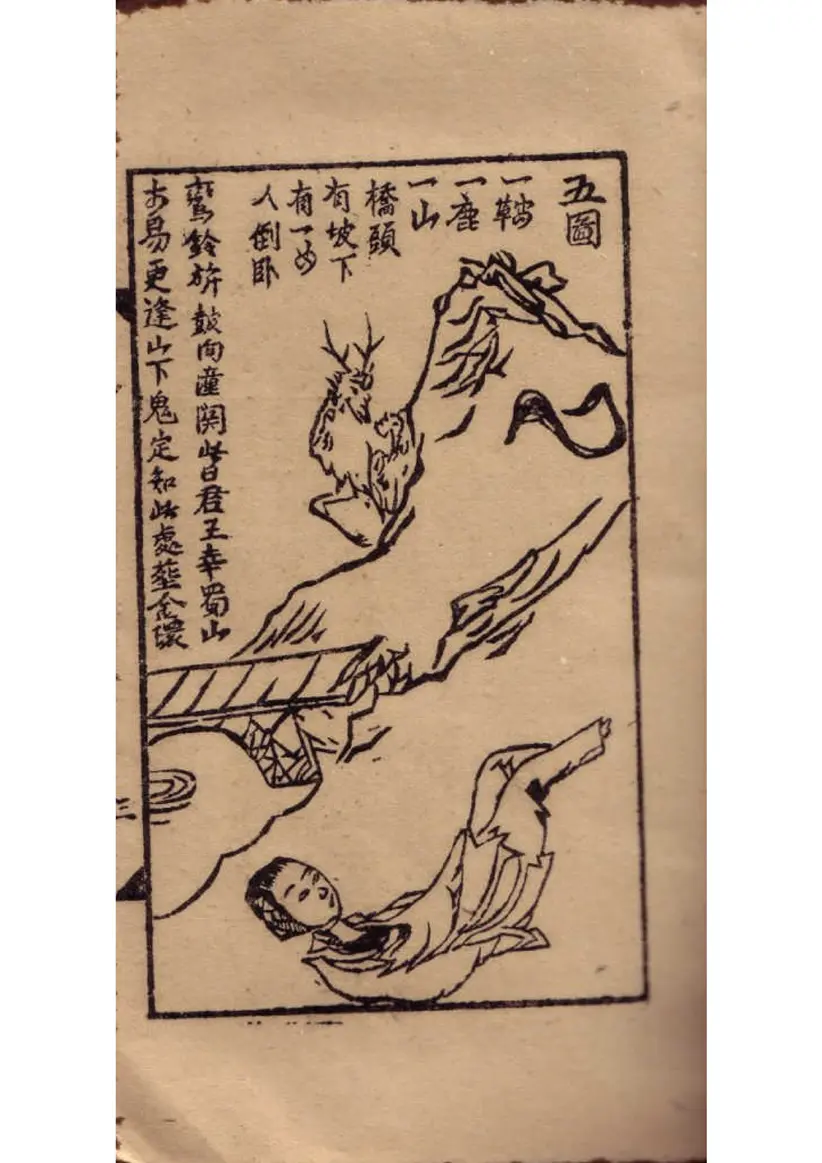 五圖
一
一鹿
一山
橋頭
有坡下
有一女
人倒卧
鸞鈴鼓向潼関此日君王幸蜀山
木易更逢山下鬼定知此處塟金環